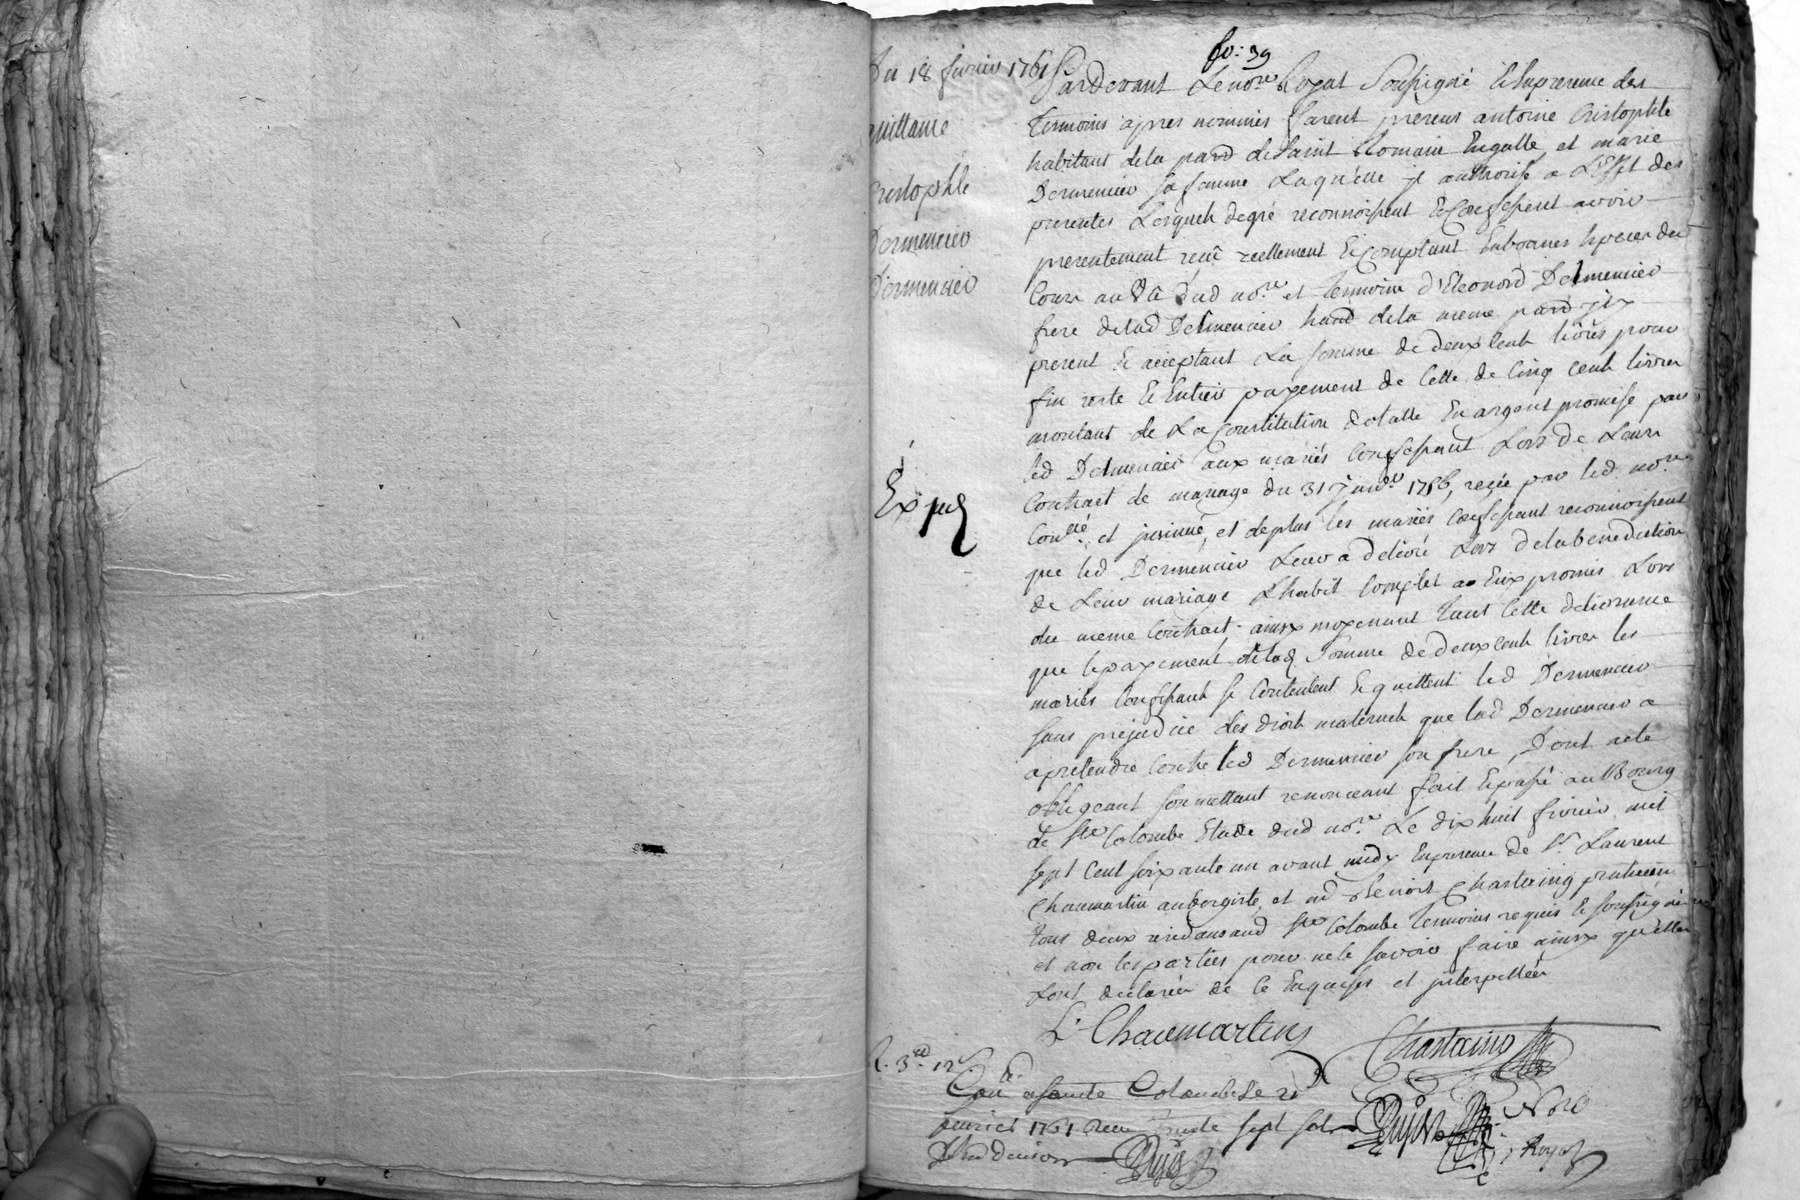 fo: 39
Du 18 fevrier 1761
quittance
Cristophle
Dermencier
Dermencier
Expéd
Pardevant Le nore Royal Soussigné En presence des
temoins apres nommés furent presens antoine Cristophle
habitant de la paroᵉ de Saint Romain En galle et marie
Dermencier sa femme Laquelle il authorise a L'effet des
presentes Lesquels de gré reconnoissent & Confessent avoir
presentement reçû reellement & Comptant En bonnes Especes du
Cours au vû dud nore et temoins d'Eleonord Dermencier
frere de lad Dermencier habt de la meme paroᵉ icy
present & acceptant La somme de deux Cents livres pour
fin reste & Entier payement de Celle de Cinq Cents livres
montant de La Constitution dotalle En argent promise par
led Dermencier aux mariés Confessant Lors de Leur
Contract de mariage du 31 janvr 1756, reçûe par led nore
Conllé, et insinué, et de plus les mariés Confessant reconnoissent
que led Dermencier Leur a delivré Lors de la benediction
de Leur mariage L'habit Complet a Eux promis Lors
du meme Contract. ainsy moyenant tant Cette delivrance
que le payement de lad Somme de deux Cents livres les
mariés Confessant se Contentent & quittent led Dermencier
sans prejudice des droits maternels que lad Dermencier a
a pretendre Contre led Dermencier son frere, Dont acte
obligeant soumettant renonceant fait & passé au Bourg
de Ste Colombe Etude dud nore Le dix huit fevrier mil
sept Cent soixante un avant midy En presence de Sr Laurent
Chaumartin aubergiste, et md Benoist Chastaing praticien
tous deux residans aud Ste Colombe temoins requis & soussignés
et non les parties pour ne le savoir faire ainsy qu'elles
L'ont declarées de Ce Enquises et interpellées
L. Chaumartin
Chastaing
C. 3ed 12s.
Conllé a Sainte Colombe Le 21
fevrier 1761 Reçu Trente sept sols
Dujat
Dujat Nore
Royal